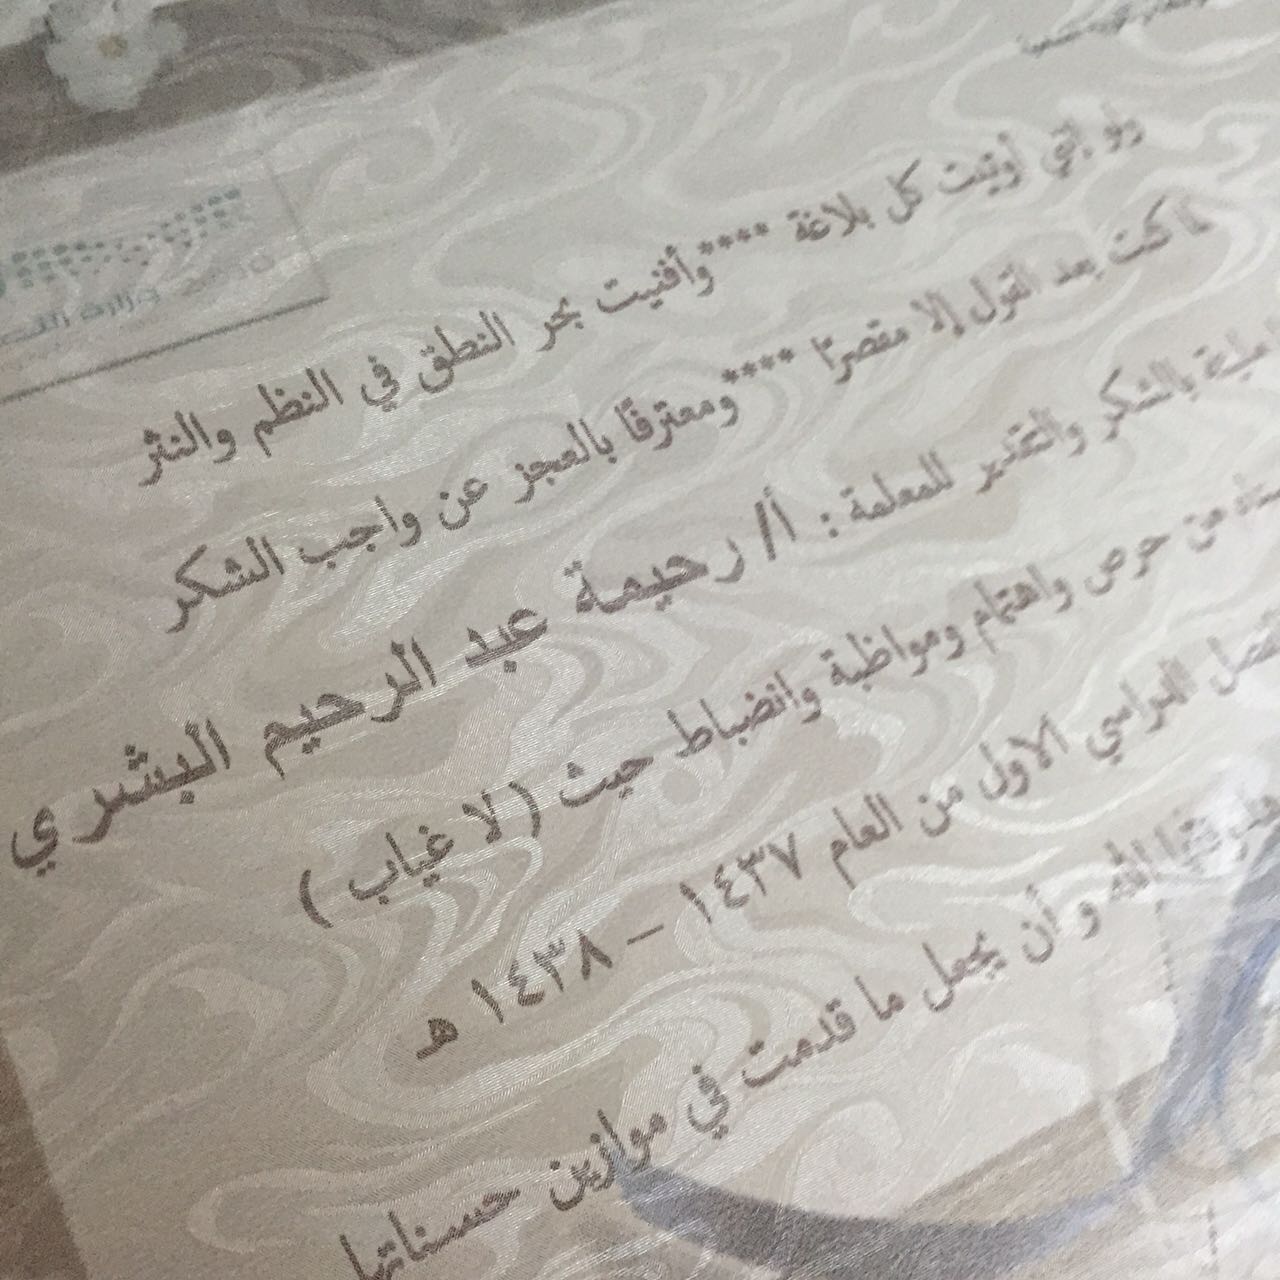 وزارة
ولو أنني أوتيت كل بلاغة ****وأفنيت بحر النطق في النظم والنثر
لما كنت بعد القول إلا مقصرًا ****ومعترفًا بالعجز عن واجب الشكر
بالشكر والتقدير للمعلمة : أ/ رحيمة عبد الرحيم البشري
من حرص واهتمام ومواظبة وانضباط حيث ( لا غياب )
الفصل الدراسي الاول من العام ١٤٣٧ – ١٤٣٨ هـ
الله و أن يجعل ما قدمت في موازين حسناتها